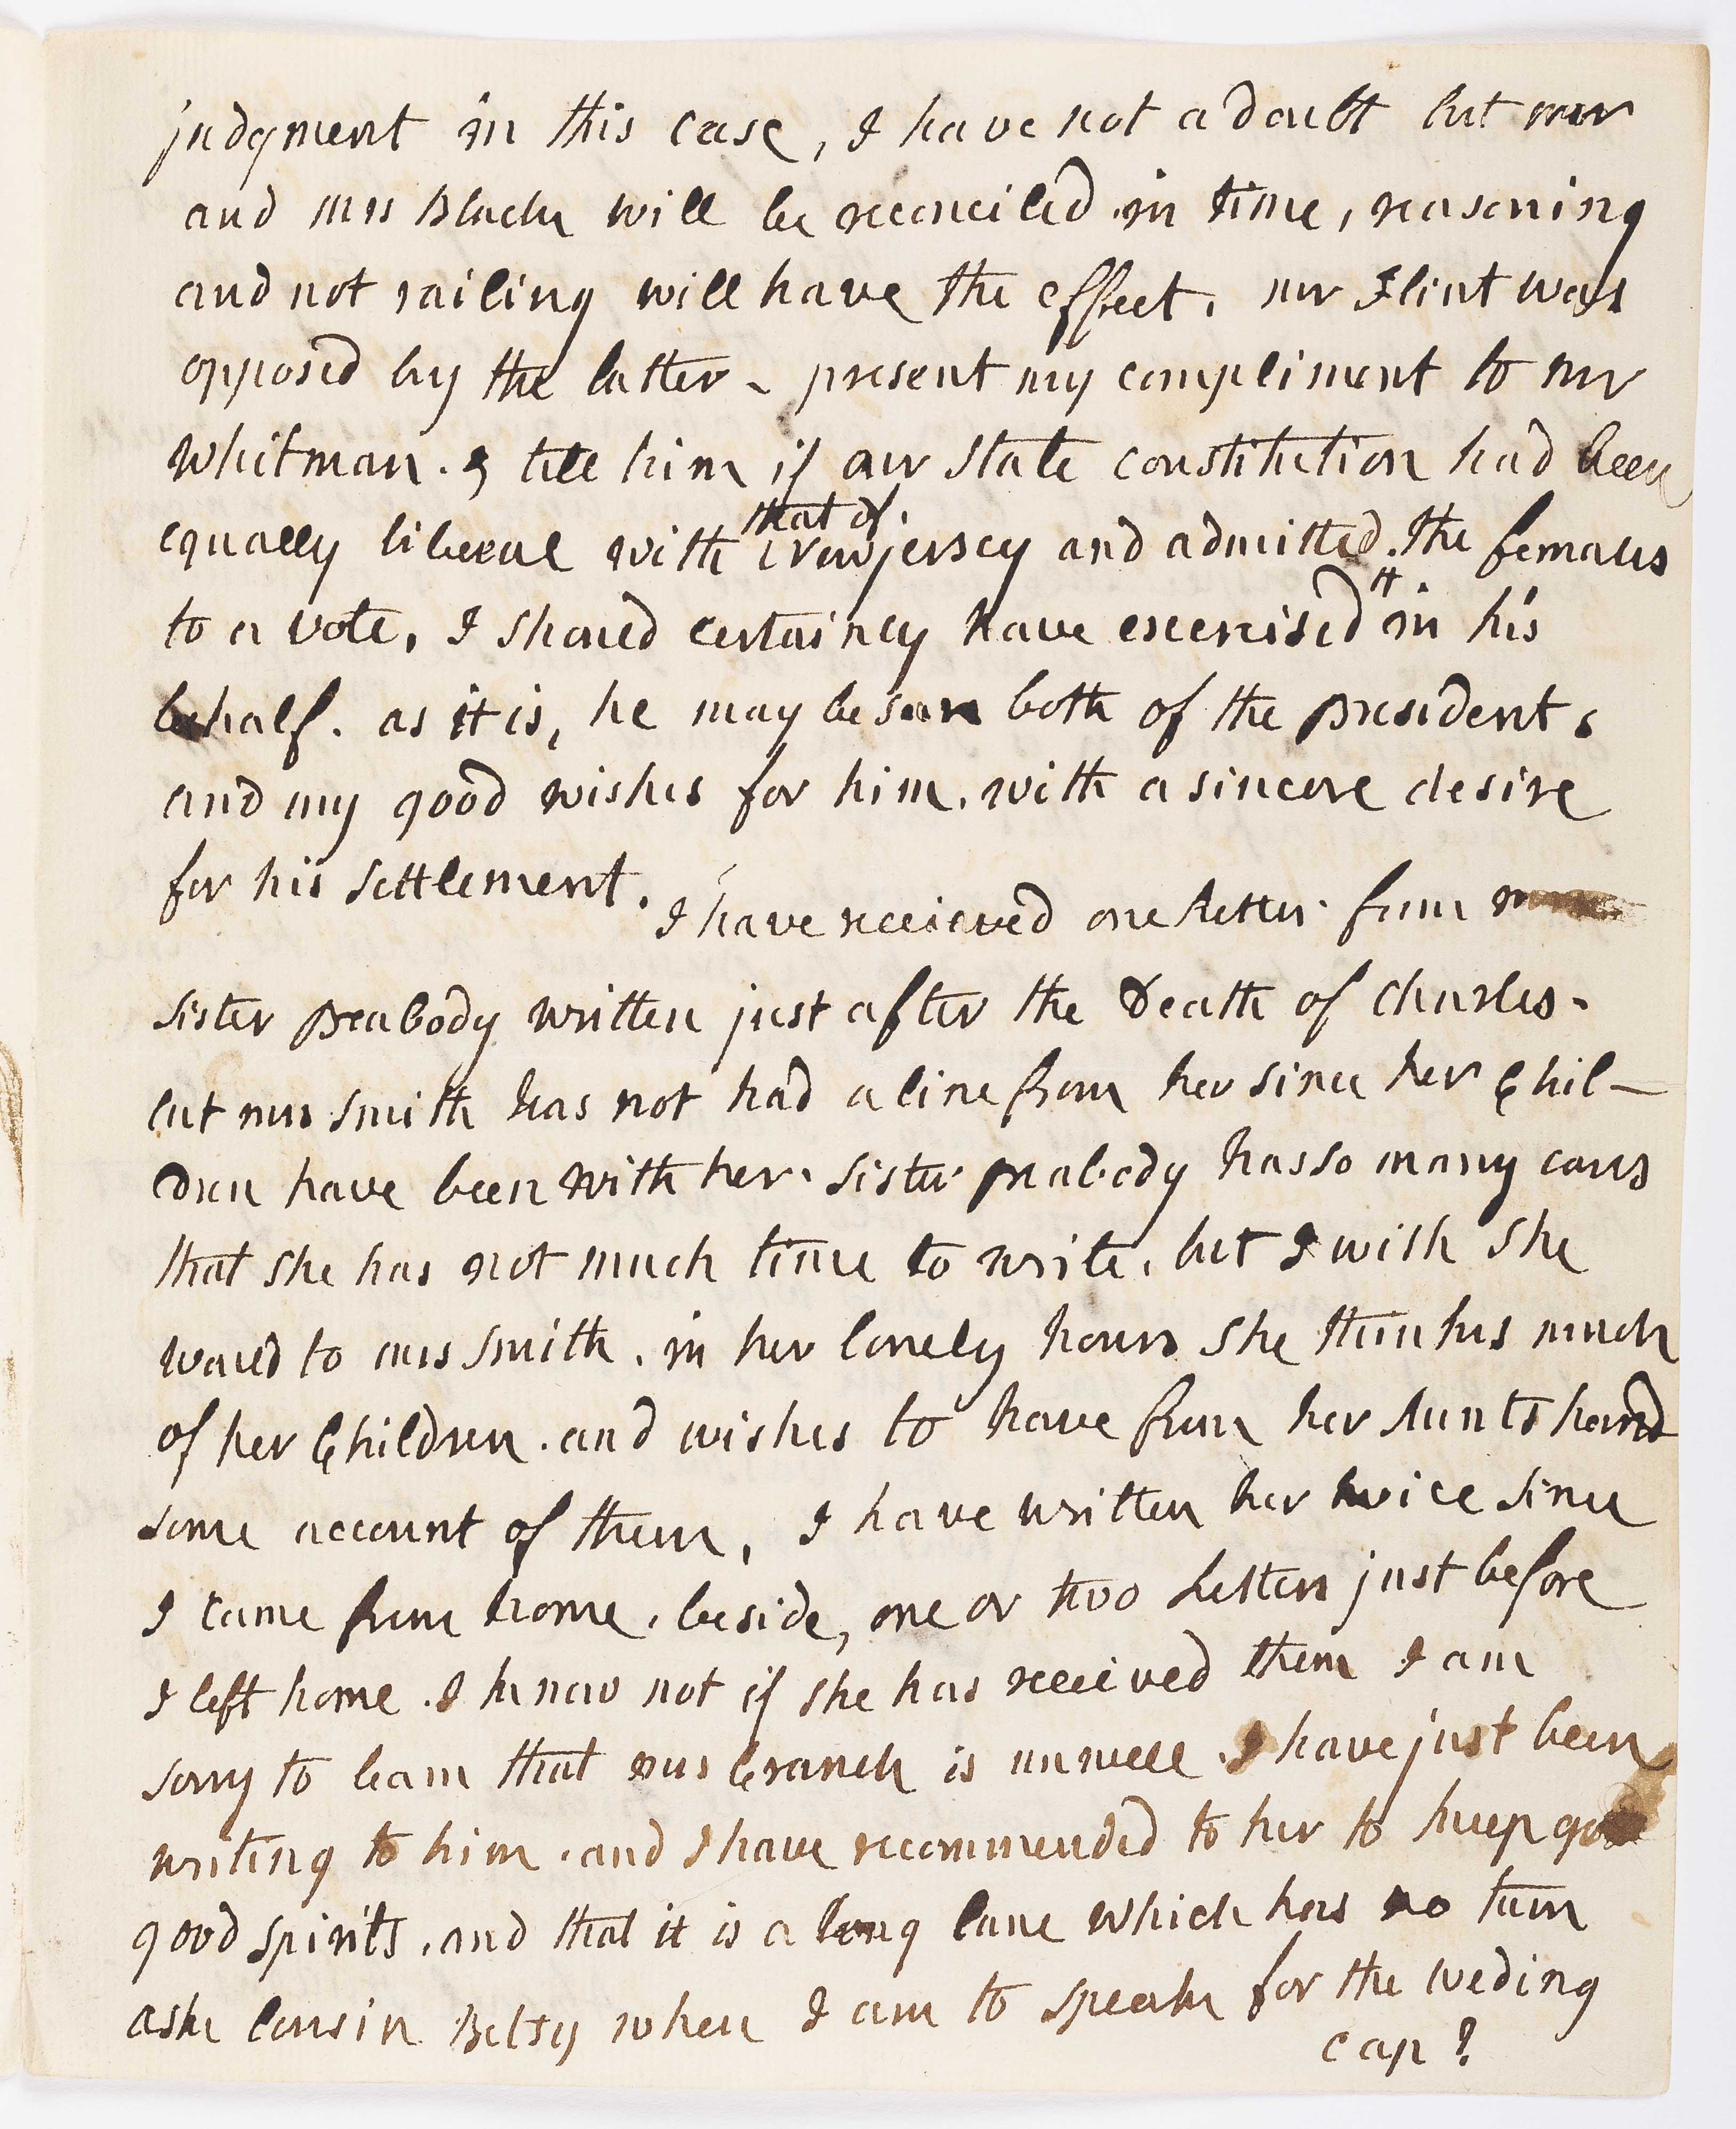 judgment in this case, I have not a doubt but mr
and mrs Black will be reconciled in time, reasoning
and not railing will have the effect. mr Flint was
opposed by the latter - present my compliment to mr
Whitman. & tell him if our State constitution had been
that of
equally liberal with New jersey and admitted the females
it
to a vote, I should certainly have exercised in his
behalf. as it is, he may be sure both of the President,
and my good wishes for him, with a sincere desire
for his settlement.
I have received one Letter from
sister Peabody written just after the Death of Charles-
but mrs Smith has not had a line from her since her Chil-
dren have been with her. Sister peabody has so many cares
that she has not much time to write, but I wish she
would to mrs Smith. in her lonely hours She thinks much
of her Children. and wishes to have from her Aunts hand
some account of them, I have written her twice since
I came from home, beside, one or two Letters just before
I left home. I know not if she has received them I am
sorry to learn that mrs Cranch is unwell. I have just been
writing to him. and I have recommended to her to keep
good spirits, and that it is a long lane which has no turn
ask Cousin Betsy when I am to speak for the weding
cap?